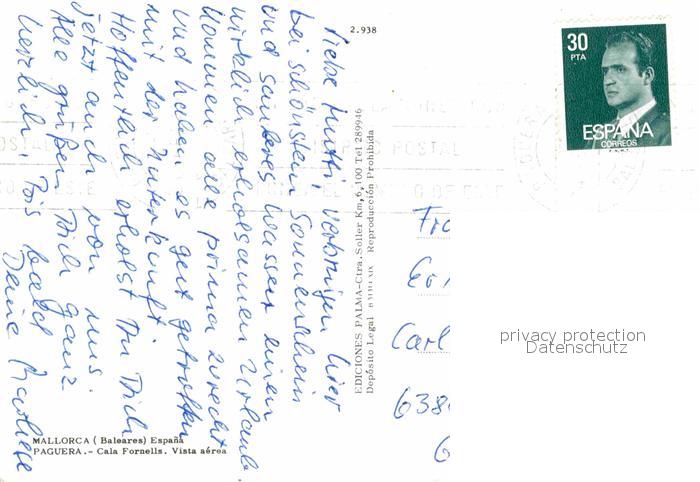 2.938
30
PTA
ESPAÑA
CORREOS
F.N.M.T.
Liebe Mutti, verbringen hier
bei schönstem Sonnenschein
und sauberes Wasser einen
wirklich erholsamen Urlaub.
Kommen alle prima zurecht
und haben es gut getroffen
mit der Unterkunft.
Hoffentlich erholst Du Dich
jetzt auch von uns.
Alle grüßen Dich ganz
herzlich, bis bald
Deine
EDICIONES PALMA-Ctra. Soller Km, 6,100 Tel 289946
Depósito Legal Reproducción Prohibida
Carl
638
6
privacy protection
Datenschutz
MALLORCA (Baleares) España
PAGUERA.- Cala Fornells. Vista aérea